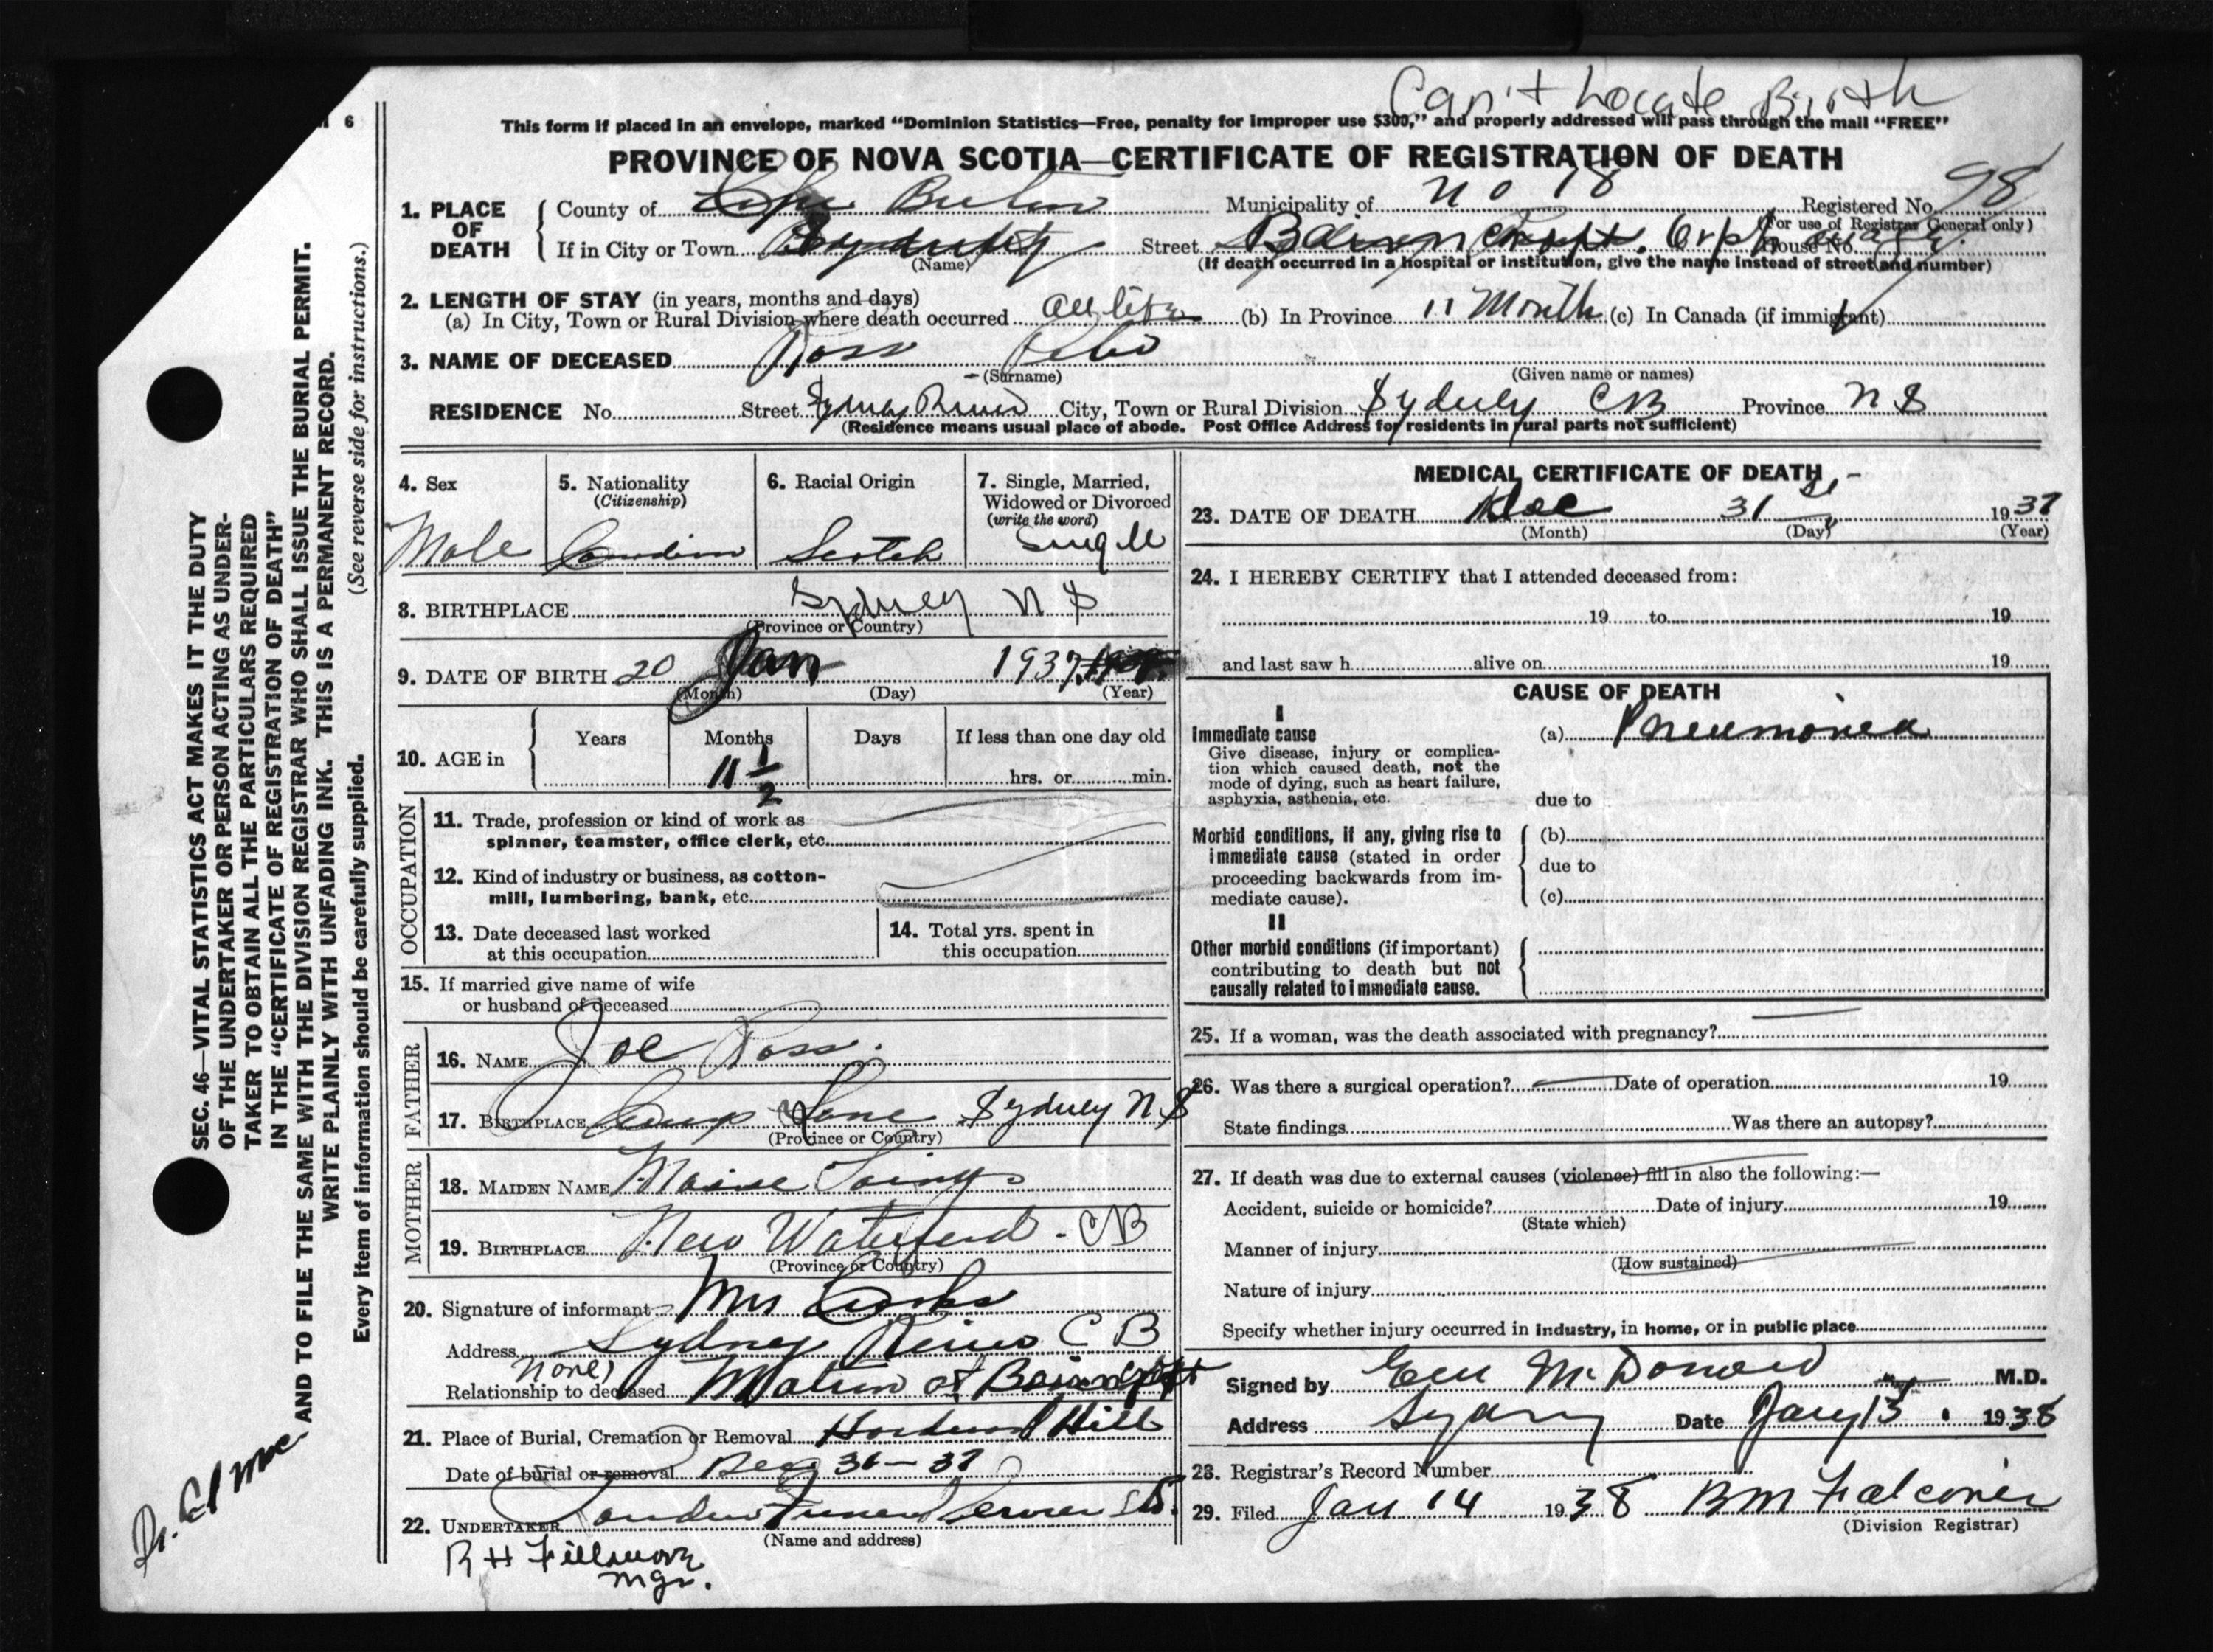 Can't Locate Birth
6
This form if placed in an envelope, marked "Dominion Statistics—Free, penalty for improper use $300," and properly addressed will pass through the mail "FREE"
PROVINCE OF NOVA SCOTIA—CERTIFICATE OF REGISTRATION OF DEATH
1. PLACE OF DEATH
County of Cape Breton Municipality of No 18 Registered No. 98
(For use of Registrar General only)
If in City or Town Street House No.
(Name) (If death occurred in a hospital or institution, give the name instead of street and number)
2. LENGTH OF STAY (in years, months and days)
(a) In City, Town or Rural Division where death occurred all life (b) In Province 11 Month (c) In Canada (if immigrant)
3. NAME OF DECEASED Ross
(Surname) (Given name or names)
RESIDENCE No. Street Sydney River City, Town or Rural Division Sydney CB Province NS
(Residence means usual place of abode. Post Office Address for residents in rural parts not sufficient)
4. Sex Male
5. Nationality (Citizenship) Canadian
6. Racial Origin Scotch
7. Single, Married, Widowed or Divorced (write the word) Single
8. BIRTHPLACE Sydney NS
(Province or Country)
9. DATE OF BIRTH 20 Jan 1937
(Month) (Day) (Year)
10. AGE in Years Months Days If less than one day old
11 1/2 hrs. or min.
OCCUPATION
11. Trade, profession or kind of work as
spinner, teamster, office clerk, etc.
12. Kind of industry or business, as cotton-
mill, lumbering, bank, etc.
13. Date deceased last worked
at this occupation
14. Total yrs. spent in
this occupation
15. If married give name of wife
or husband of deceased
FATHER
16. NAME Joe Ross
17. BIRTHPLACE Sydney N.S
(Province or Country)
MOTHER
18. MAIDEN NAME
19. BIRTHPLACE New Waterford - CB
(Province or Country)
20. Signature of informant Mrs
Address Sydney River CB
None
Relationship to deceased Matron of
21. Place of Burial, Cremation or Removal Hardwood Hill
Date of burial or removal Dec 31 - 37
22. UNDERTAKER
(Name and address)
R H
Mgr.
MEDICAL CERTIFICATE OF DEATH
23. DATE OF DEATH Dec 31 st 1937
(Month) (Day) (Year)
24. I HEREBY CERTIFY that I attended deceased from:
19 to 19
and last saw h alive on 19
CAUSE OF DEATH
I
Immediate cause (a) Pneumonia
Give disease, injury or complica-
tion which caused death, not the
mode of dying, such as heart failure,
asphyxia, asthenia, etc. due to
Morbid conditions, if any, giving rise to (b)
immediate cause (stated in order due to
proceeding backwards from im-
mediate cause). (c)
II
Other morbid conditions (if important)
contributing to death but not
causally related to immediate cause.
25. If a woman, was the death associated with pregnancy?
26. Was there a surgical operation? Date of operation 19
State findings Was there an autopsy?
27. If death was due to external causes (violence) fill in also the following:—
Accident, suicide or homicide? Date of injury 19
(State which)
Manner of injury
(How sustained)
Nature of injury
Specify whether injury occurred in industry, in home, or in public place
Signed by McDonald M.D.
Address Sydney Date Jany 13 1938
28. Registrar's Record Number
29. Filed Jan 14 1938 BM Falconer
(Division Registrar)
SEC. 46—VITAL STATISTICS ACT MAKES IT THE DUTY
OF THE UNDERTAKER OR PERSON ACTING AS UNDER-
TAKER TO OBTAIN ALL THE PARTICULARS REQUIRED
IN THE "CERTIFICATE OF REGISTRATION OF DEATH"
AND TO FILE THE SAME WITH THE DIVISION REGISTRAR WHO SHALL ISSUE THE BURIAL PERMIT.
WRITE PLAINLY WITH UNFADING INK. THIS IS A PERMANENT RECORD.
Every item of information should be carefully supplied. (See reverse side for instructions.)